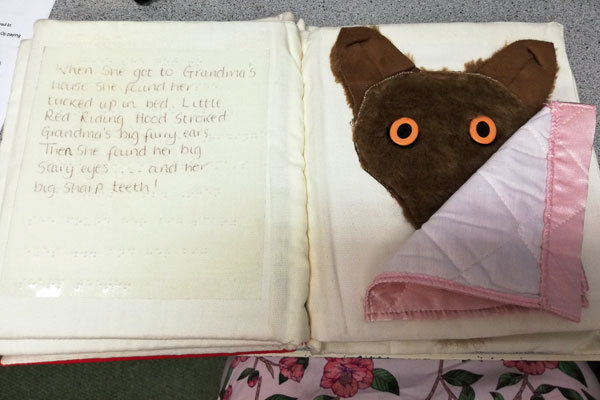 When She got to Grandma's
house she found her
tucked up in bed. Little
Red Riding Hood Stroked
Grandma's big furry ears.
Then She found her big
Scary eyes .... and her
big Sharp teeth!